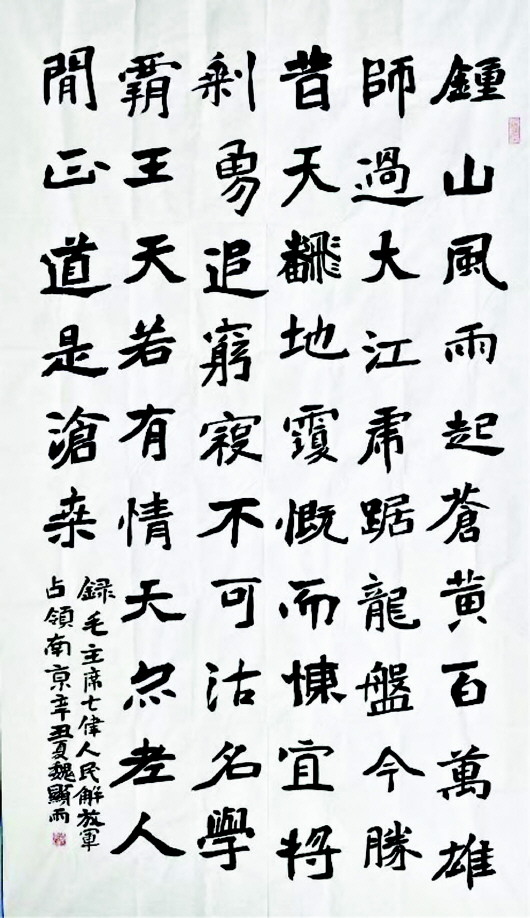 鍾山風雨起蒼黄百萬雄
師過大江虎踞龍盤今勝
昔天飜地覆慨而慷宜將
剩勇追窮寇不可沽名學
霸王天若有情天亦老人
閒正道是滄桑
録毛主席七律人民解放軍
占領南京辛丑夏魏顯雨